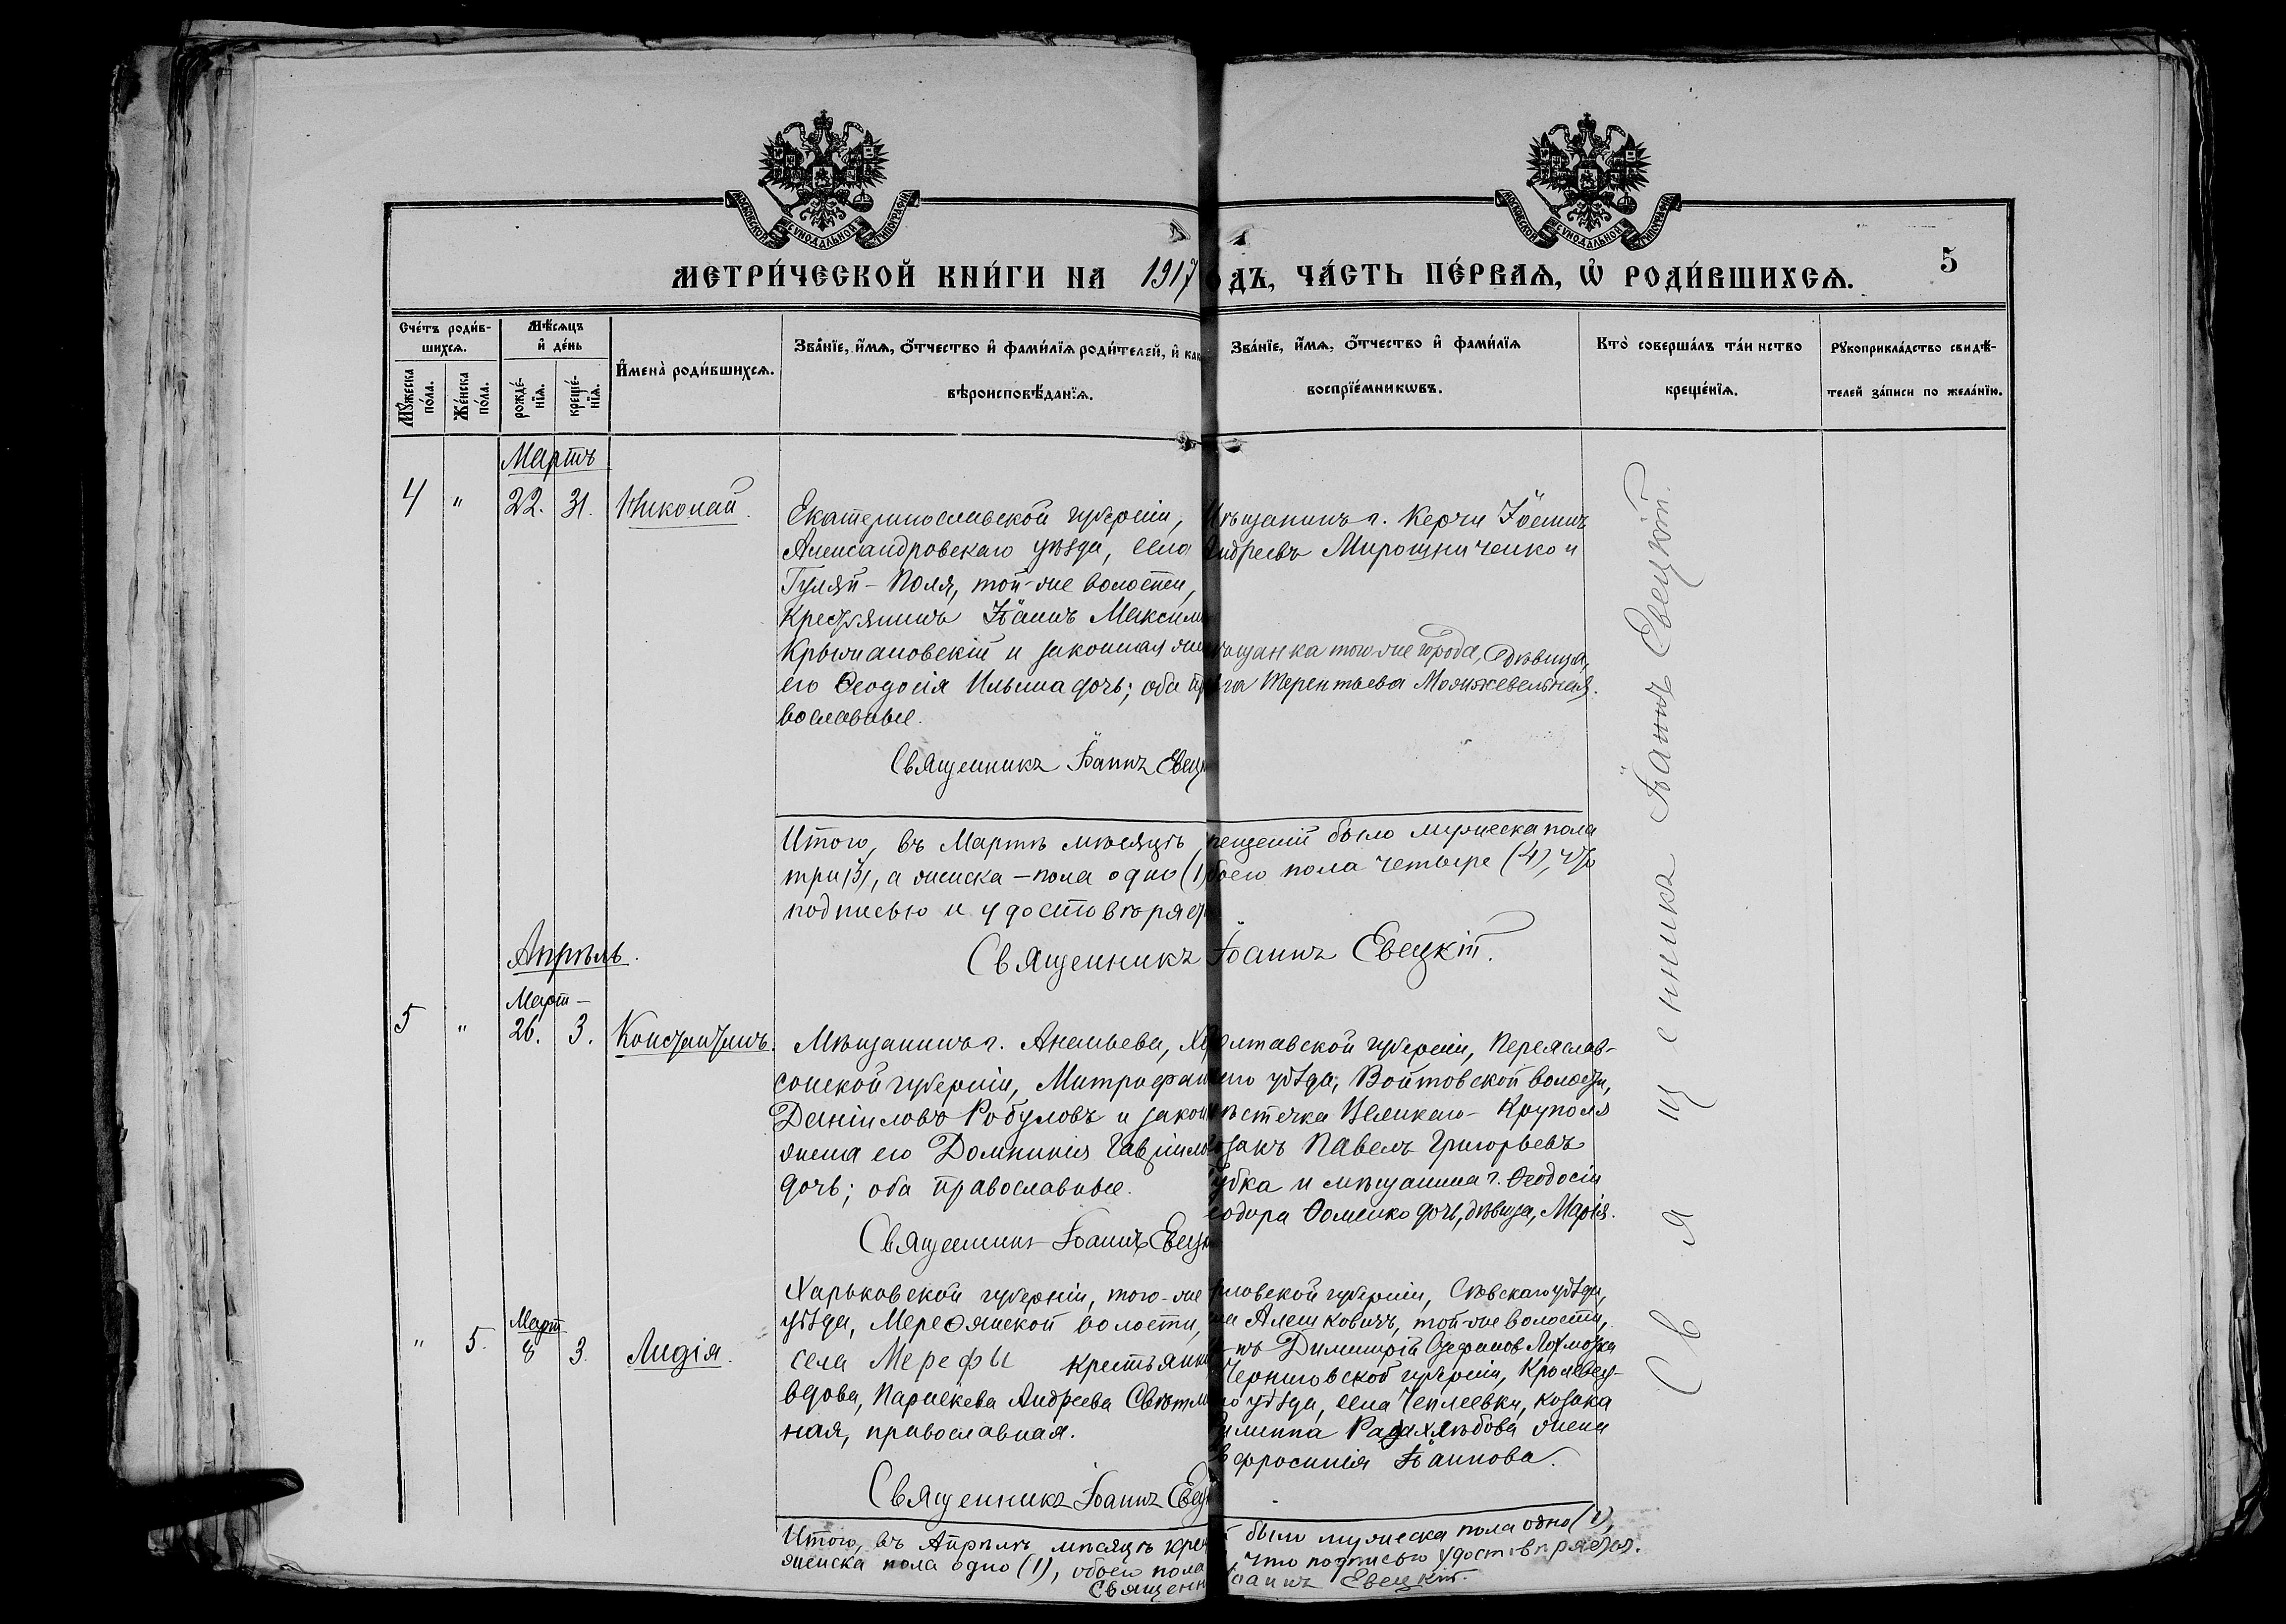 МОСКОВСКОЙ СѴНОДАЛЬНОЙ ТИПОГРАФІИ
МОСКОВСКОЙ СѴНОДАЛЬНОЙ ТИПОГРАФІИ
МЕТРИ́ЧЕСКОЙ КНИ́ГИ НА 1917
ОДЪ, ЧА́СТЬ ПЕ́РВАѦ, Ѡ҆ РОДИ́ВШИХСѦ.
5
Сче́тъ роди́в-
шихсѧ.
Мꙋ́жеска по́ла.
Же́нска по́ла.
Мѣ́сѧцъ
и҆ де́нь
рожде́-
нїѧ.
креще́-
нїѧ.
И҆мена̀ роди́вшихсѧ.
Зва́нїе, и҆́мѧ, ѻ҆́тчество и҆ фами́лїѧ роди́телей, и҆ как
вѣроисповѣ́данїѧ.
Зва́нїе, и҆́мѧ, ѻ҆́тчество и҆ фами́лїѧ
воспрїе́мникѡвъ.
Кто̀ соверша́лъ та́инство
креще́нїѧ.
Рꙋкоприкла́дство свидѣ́-
телей за́писи по жела́нїю.
Мартъ
4 " 22. 31. Николай.
Екатеринославской губерніи,
Александровскаго уѣзда, села
Гуляй-Поля, той-же волости,
крестьянинъ Іоаннъ Максим
Крыжановскій и законная же
его Ѳеодосія Ильина дочь; оба пр
вославные.
Священникъ Іоаннъ Евец
мѣщанинъ г. Керчи Іосифъ
Андреевъ Мирошниченко и
мѣщанка того-же города, дѣвица,
Терентьева
Итого, въ Мартѣ мѣсяцѣ, крещеній было мужеска пола
три (3), а женска-пола одно (1) обоего пола четыре (4), что
подписью и удостовѣряе
Священникъ Іоаннъ Евецкій.
Апрѣль.
Март-
5 " 26. 3. Константинъ.
Мѣщанинъ г. Ананьева, Хер
сонской губерніи, Митрофан
Даніиловъ Робуловъ и закон
жена его Домникія Гавріилов
дочь; оба православные.
Священникъ Іоаннъ Евец
Полтавской губерніи, Переяслав-
скаго уѣзда, Войтовской волости,
мѣстечка Великаго-Круполя
козакъ Павелъ Григорьевъ
убка и мѣщанина г. Ѳеодосіи
Ѳеодора Ѳоменко дочь, дѣвица, Марія.
Март
" 5. 8 3. Лидія.
Харьковской губерніи, того-же
уѣзда, Мерефянской волости,
села Мерефы крестьянк
вдова, Параскева Андреева Свѣтлич
ная, православная.
Священникъ Іоаннъ Евец
рловской губерніи, Сѣвскаго уѣзда,
ла Алешковичъ, той-же волости,
нъ Димитрій Стефанов
Черниговской губерніи, Кролевец-
го уѣзда, села Чеплеевки, козака
Филиппа жена
Евфросинія Іоаннова.
Итого, въ Апрѣлѣ мѣсяцѣ крещ было мужеска пола одно (1),
женска пола одно (1), обоего пола что подписью удостовѣряется.
Священ Іоаннъ Евецкій.
Священникъ Іоаннъ Евецкій.